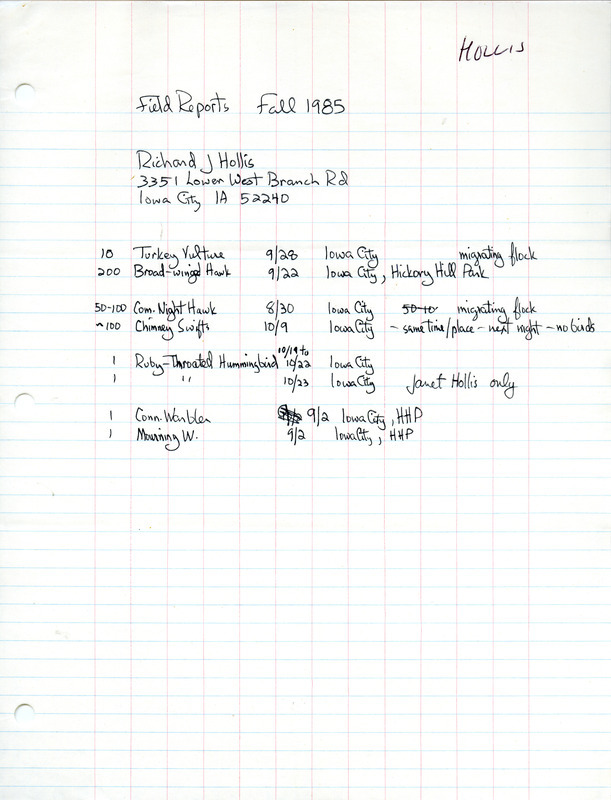 HOLLIS
Field Reports Fall 1985
Richard J Hollis
3351 Lower West Branch Rd
Iowa City IA 52240
10 Turkey Vulture 9/28 Iowa City migrating flock
200 Broad-winged Hawk 9/22 Iowa City, Hickory Hill Park
50-100 Com. Night Hawk 8/30 Iowa City 50-10 migrating flock
~100 Chimney Swifts 10/9 Iowa City - same time/place - next night - no birds
10/19 to
1 Ruby-Throated Hummingbird 10/22 Iowa City
1 " 10/23 Iowa City Janet Hollis only
1 Conn. Warbler 9/2 Iowa City, HHP
1 Mourning W. 9/2 Iowa City, HHP